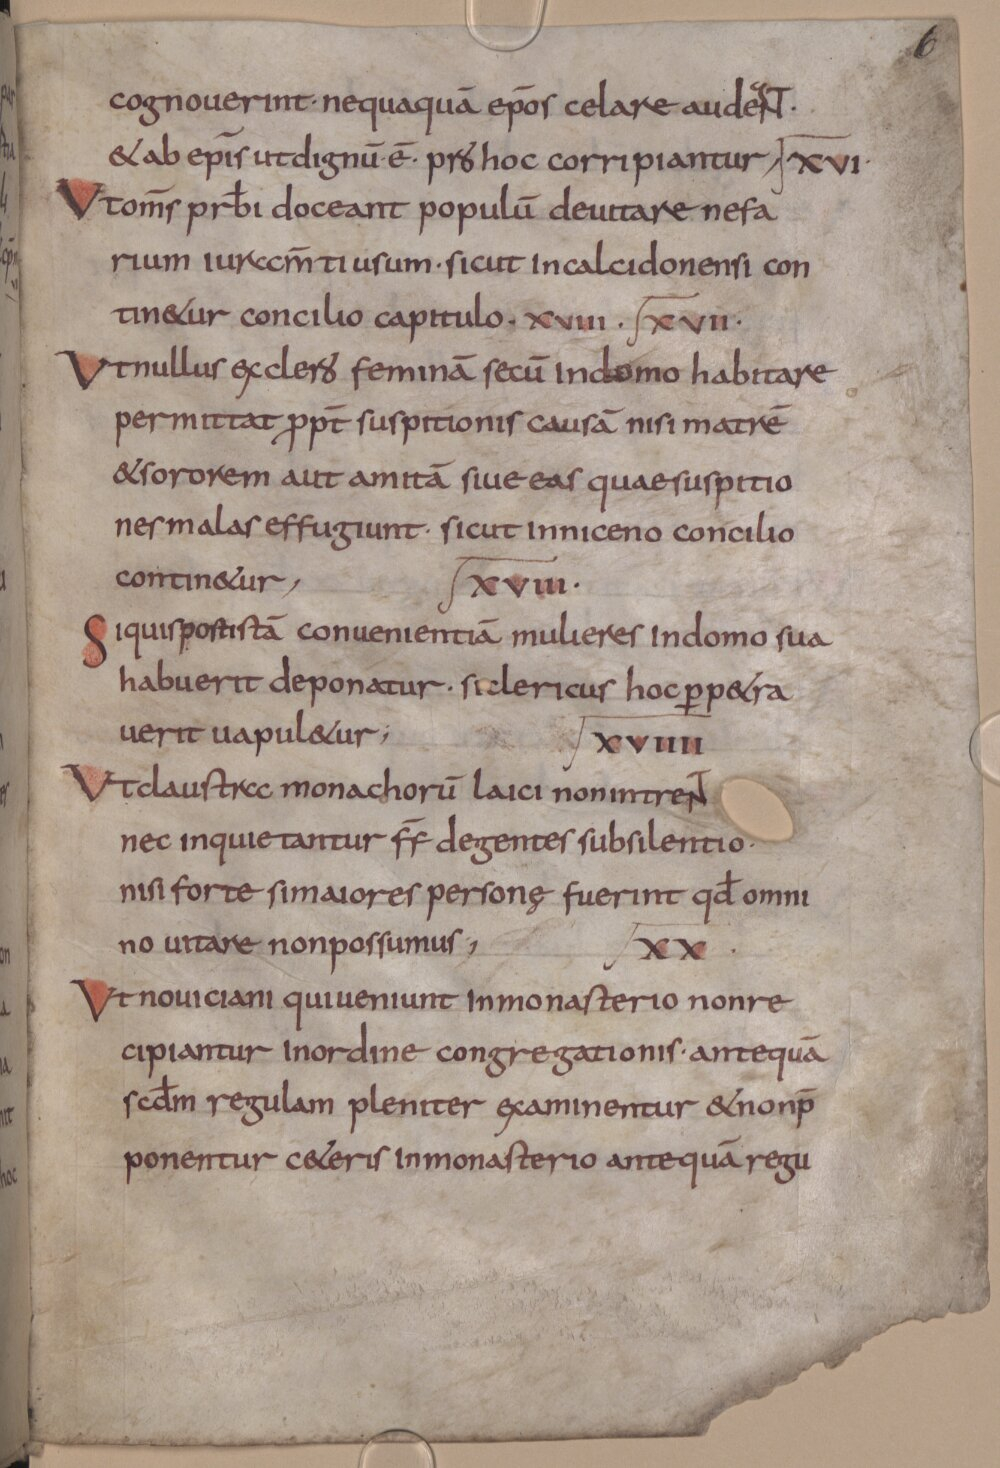 6
cognouerint· nequaquā ep̄os celare audeaNT·
& ab ep̄is ut dignū ē· pro hoc corripiantur, XVI·
Vt om̄s prb̄i doceant populū deuitare nefa
rium iuram̄ti usum· sicut in calcidonensi con
tin&ur concilio capitulo· xviii· XVII·
Vt nullus ex clero feminā secū in domo habitare
permittat ꝓpt̄ suspitionis causā nisi matrē
& sororem aut amitā siue eas quae suspitio
nes malas effugiunt· sicut in niceno concilio
contin&ur, XVIII·
Si quis post istā conuenientiā mulieres in domo sua
habuerit deponatur· si clericus hoc ꝑp&ra
uerit uapul&ur; XVIIII
Vt claustra monachorū laici non intreNT
nec inquietantur ff̄ degentes sub silentio·
nisi forte si maiores personę fuerint qd̄ omni
no uitare non possumus, XX·
Vt nouiciani qui ueniunt in monasterio non re
cipiantur in ordine congregationis· antequā
scd̄m regulam pleniter examinentur & non p̄
ponentur c&eris in monasterio antequā regu